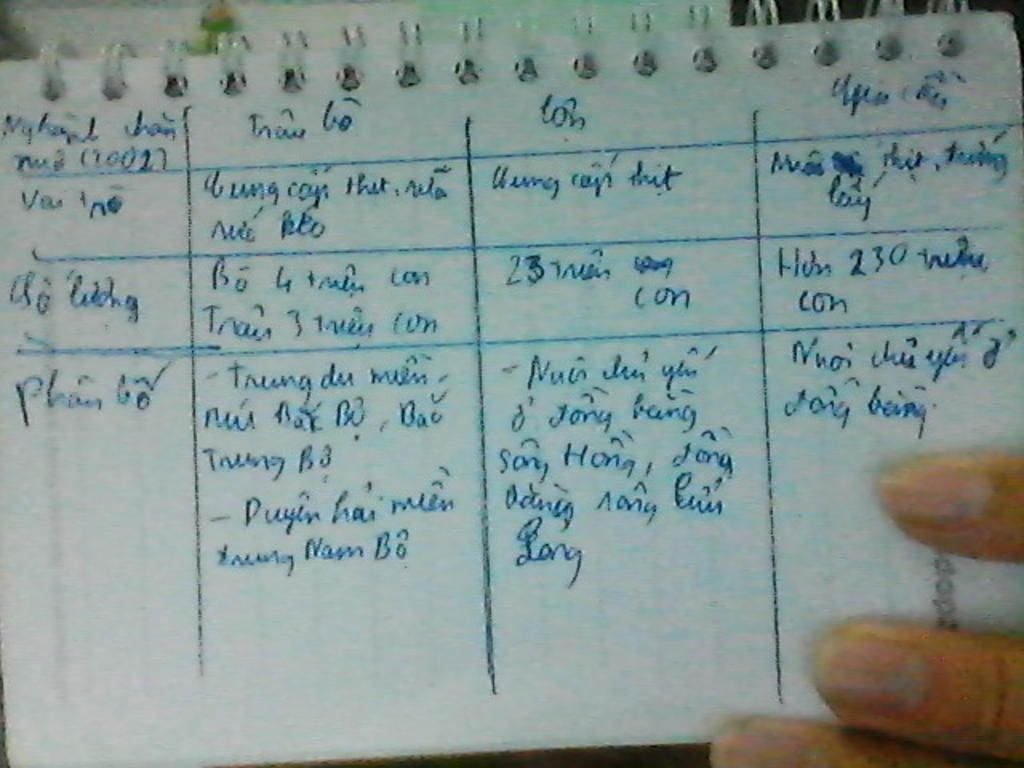 Nghành chăn Trâu bò Lợn Gia cầm
nuô (2002)
Vai trò Cung cấp thịt, sữa Cung cấp thịt thịt, trứng
sức kéo lấy
Số lượng Bò 4 triệu con 23 triệu Hơn 230 triệu
Trâu 3 triệu con con con
Phân bố - Trung du miền - Nuôi chủ yếu Nuôi chủ yếu ở
núi Bắc Bộ, Bắc ở đồng bằng đồng bằng.
Trung Bộ sông Hồng, đồng
- Duyên hải miền bằng sông Cửu
trung Nam Bộ Long